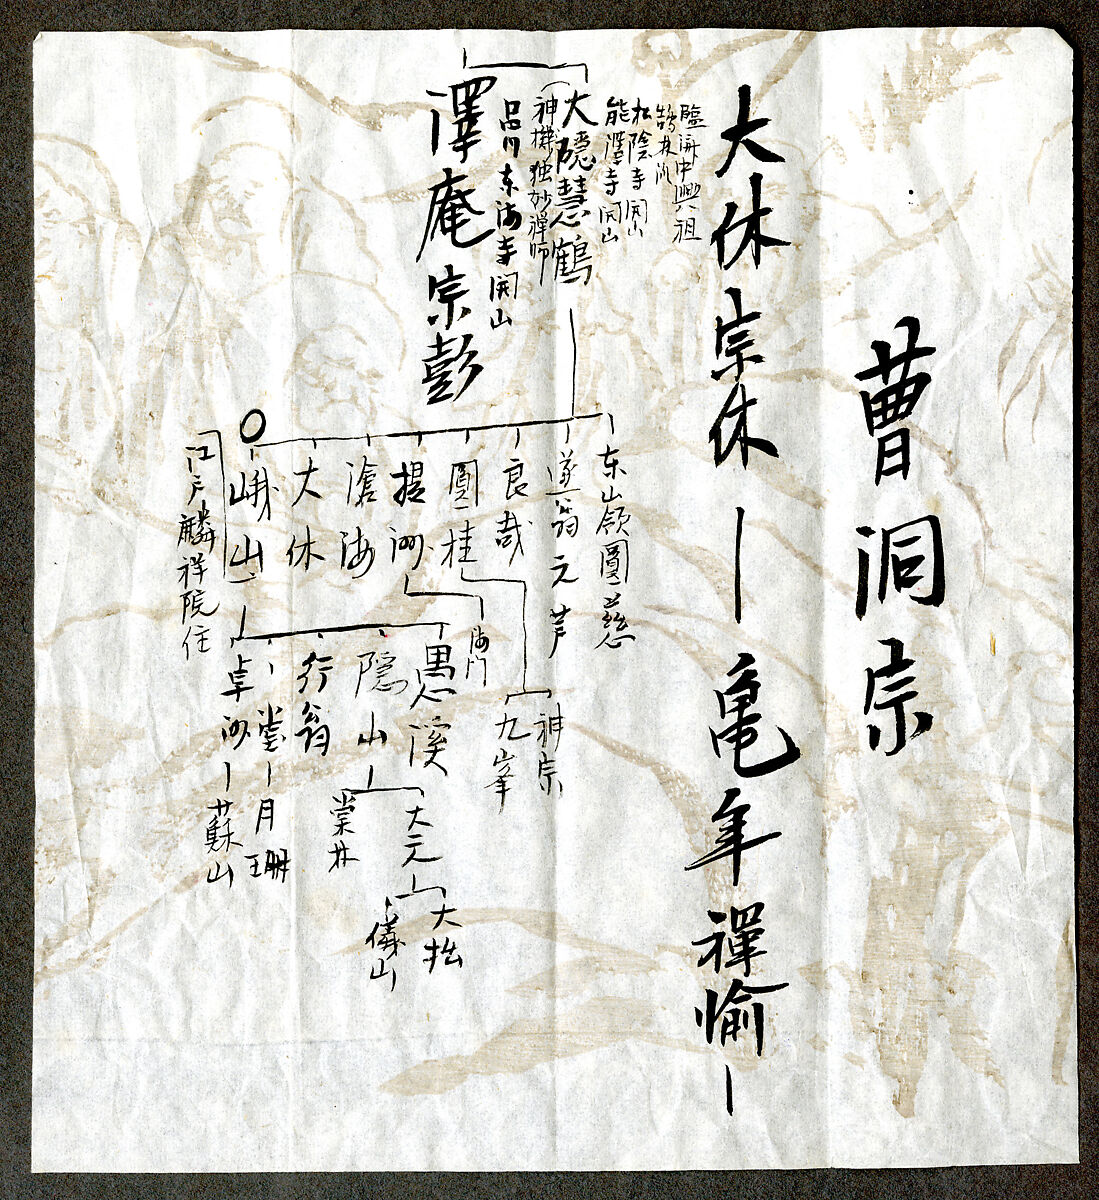 曹洞宗
大休宗休―亀年禪愉―
臨済中興八祖
鵠林派
松陰寺開山
能澤寺開山
大隱慧鶴
神機独妙禅師
品川东海寺開山
澤庵宗彭
东山領圓慈
遂翁元芦
良哉
圓桂
提洲
滄海
大休
峨山
江戸麟祥院住
神宗
九峯
海门
愚溪
隠山
行翁
一堂―月珊
卓洲―蘇山
大元
棠林
大拙
儀山